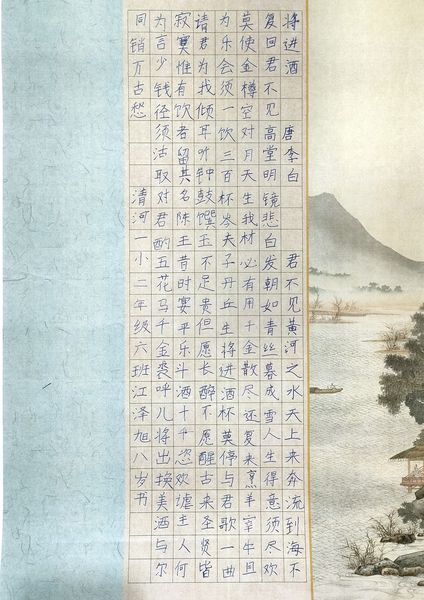 将进酒 唐李白 君不见黄河之水天上来奔流到海不
复回君不见高堂明镜悲白发朝如青丝暮成雪人生得意须尽欢
莫使金樽空对月天生我材必有用千金散尽还复来烹羊宰牛且
为乐会须一饮三百杯岑夫子丹丘生将进酒杯莫停与君歌一曲
请君为我倾耳听钟鼓馔玉不足贵但愿长醉不愿醒古来圣贤皆
寂寞惟有饮者留其名陈王昔时宴平乐斗酒十千恣欢谑主人何
为言少钱径须沽取对君酌五花马千金裘呼儿将出换美酒与尔
同销万古愁 清河一小二年级六班江泽旭八岁书